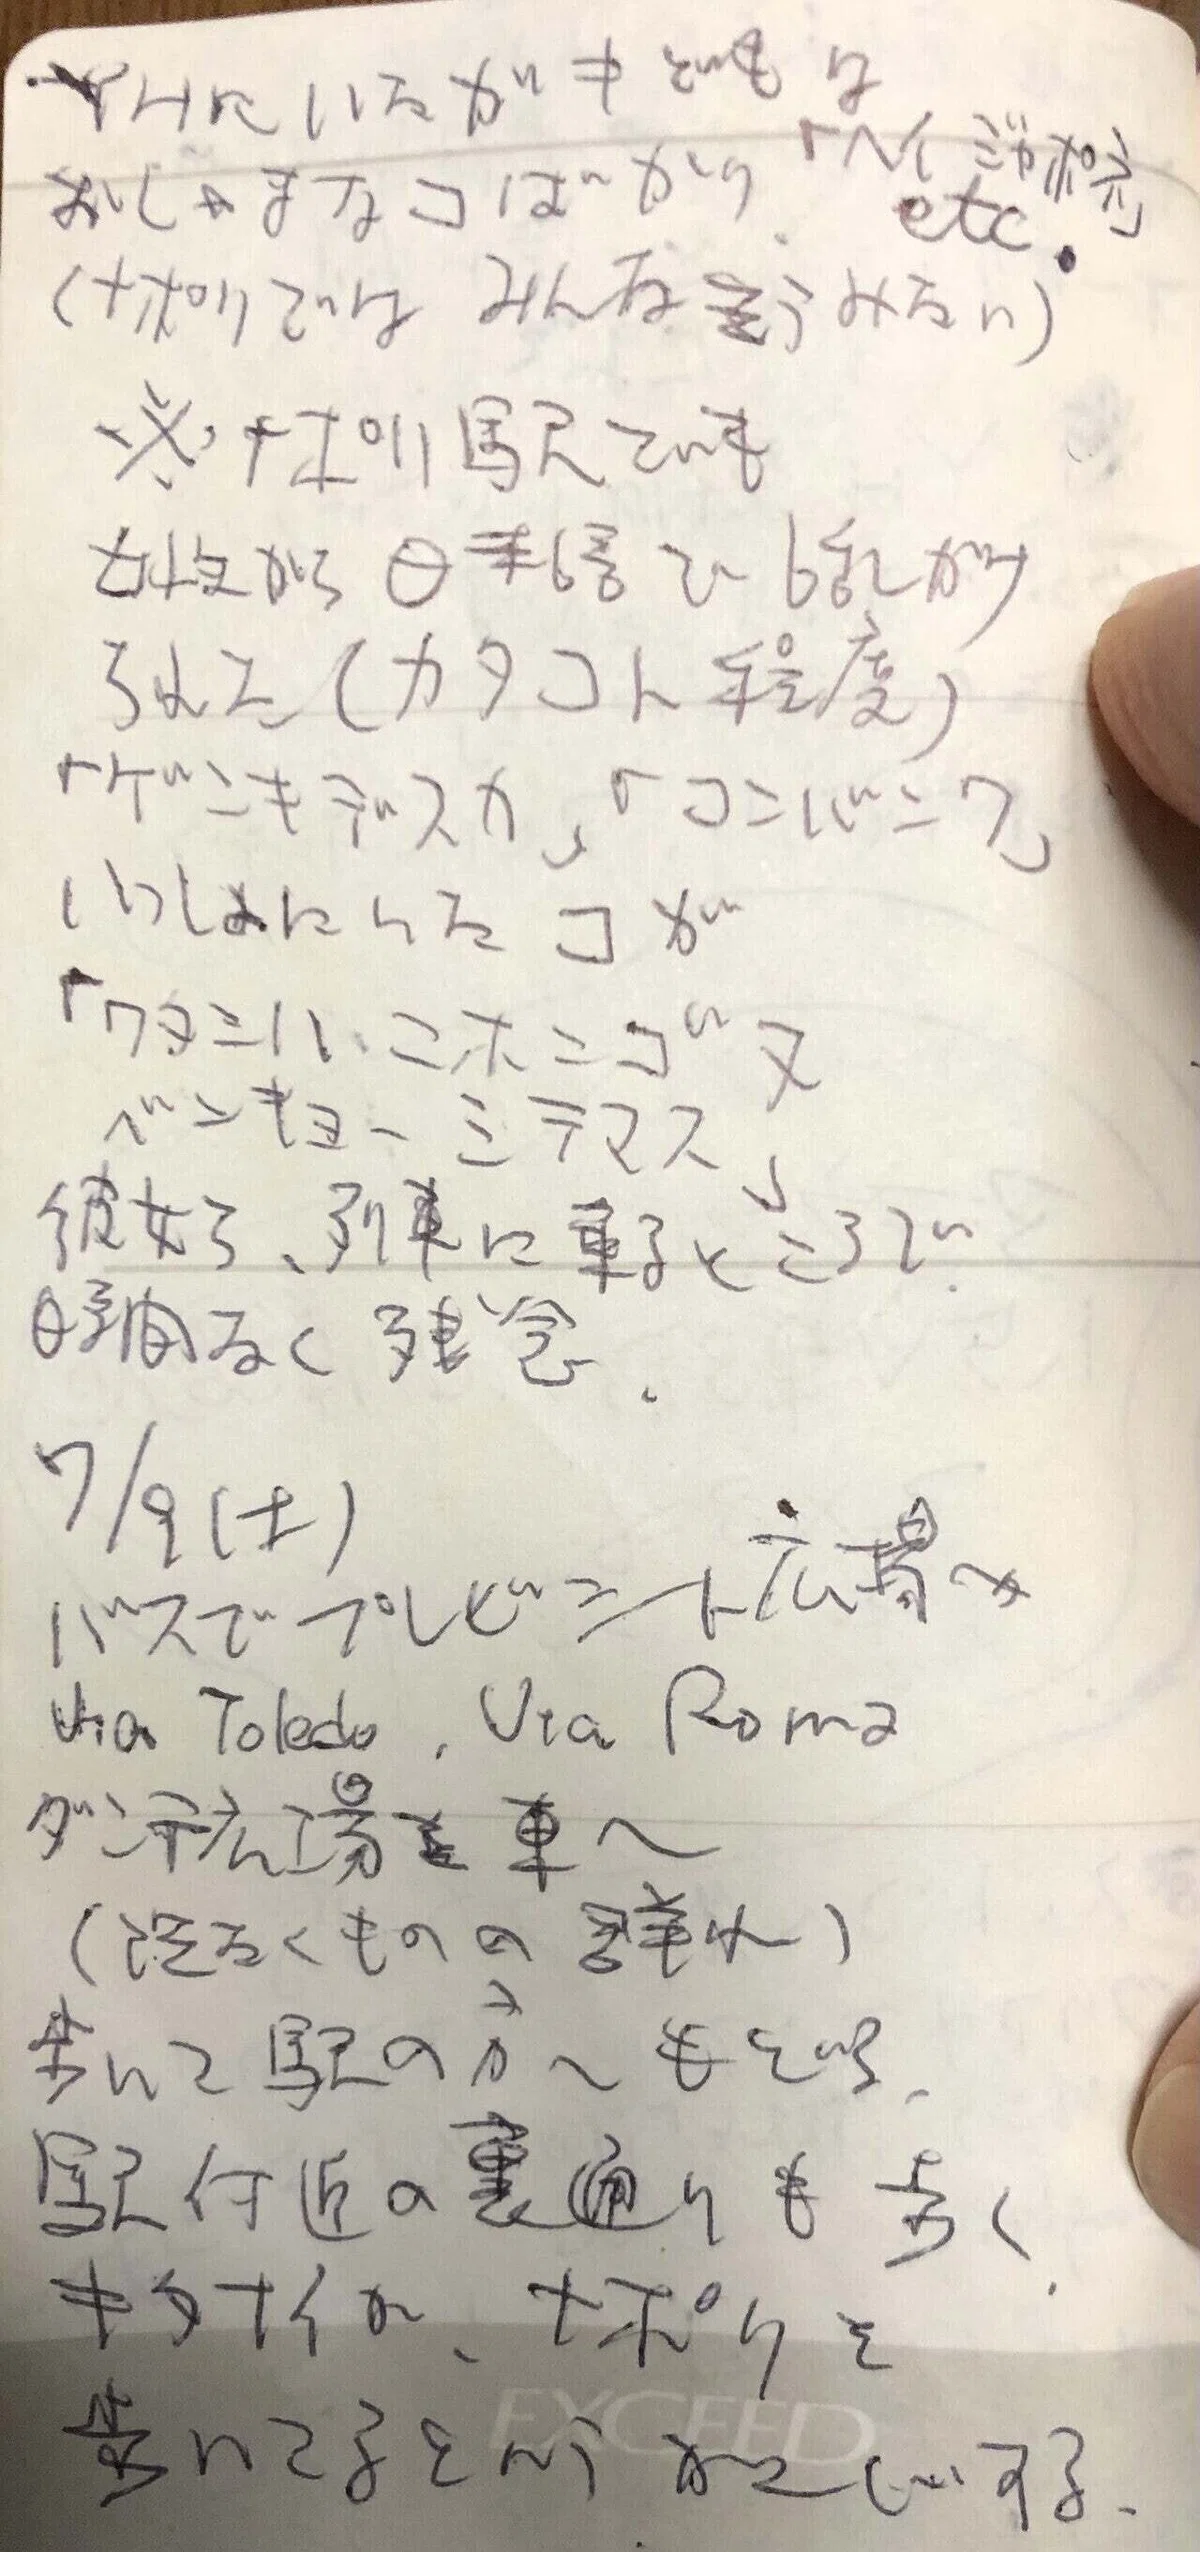 YHにいるガキどもは
おじゃまなコばかり.「ヘイ ジャポネ」
etc.
(ナポリではみんな言うみたい)
※ナポリ駅でも
女性から日本語で話しかけ
られた(カタコト程度)
「ゲンキデスカ」「コンバンワ」
いっしょにいたコが
「ワタシハ ニホンゴヲ
ベンキョーシテマス」
彼女ら、列車に乗るところで
時間なく残念.
7/9(土)
バスでプレビシート広場へ
Via Toledo, Via Roma
ダンテ広場を東へ
(道ゆくものの群れ)
歩いて駅の方へもどる.
駅付近の裏通りも歩く.
キタナイが、ナポリを
歩いてるという カンじがする.
EXCEED